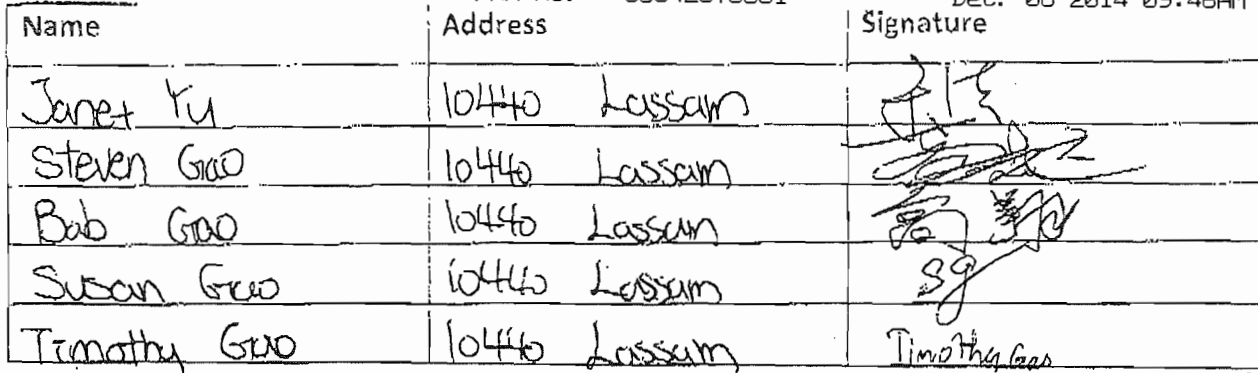 Dec. 08 2014 09:48AM
Name Address Signature
Janet Yu 10440 Lassam
Steven Gao 10440 Lassam
Bab Gao 10440 Lassam
Susan Gao 10440 Lassam sg
Timothy Gao 10440 Lassam Timothy Gao